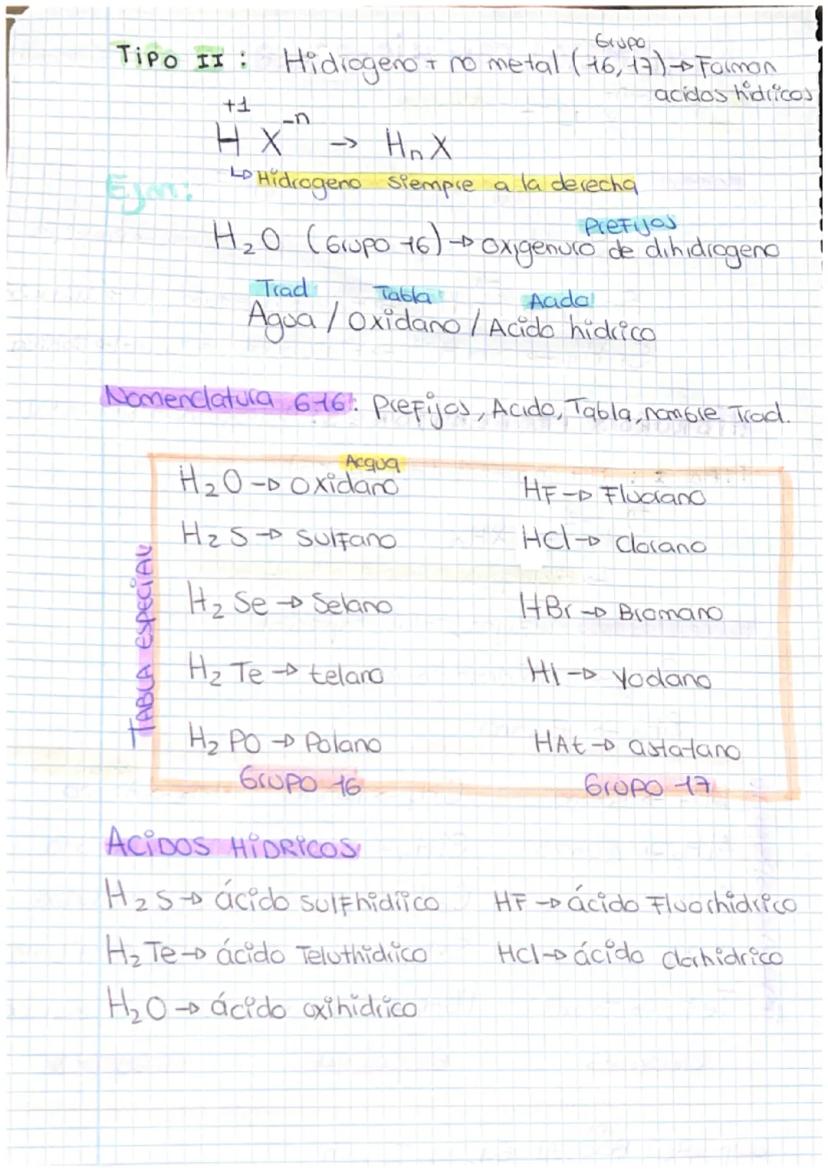 Grupo
Tipo II : Hidrogeno + no metal (16, 17) → Forman
acidos hidricos
+1
H X⁻ⁿ → HnX
↳ Hidrogeno siempre a la derecha
Ejm:
Prefijos
H₂O (Grupo 16) → oxigenuro de dihidrogeno
Trad Tabla Acido
Agua / Oxidano / Acido hidrico
Nomenclatura G16: Prefijos, Acido, Tabla, nombre Trad.
Acqua
H₂O → Oxidano HF → Fluorano
H₂S → Sulfano HCl → Clorano
TABLA ESPECIAL
H₂Se → Selano HBr → Bromano
H₂Te → telano HI → Yodano
H₂PO → Polano HAt → astatano
Grupo 16 Grupo 17
ACIDOS HÍDRICOS
H₂S → ácido sulfhidrico HF → ácido Fluorhidrico
H₂Te → ácido Teluthidrico HCl → ácido clorhidrico
H₂O → ácido oxihidrico